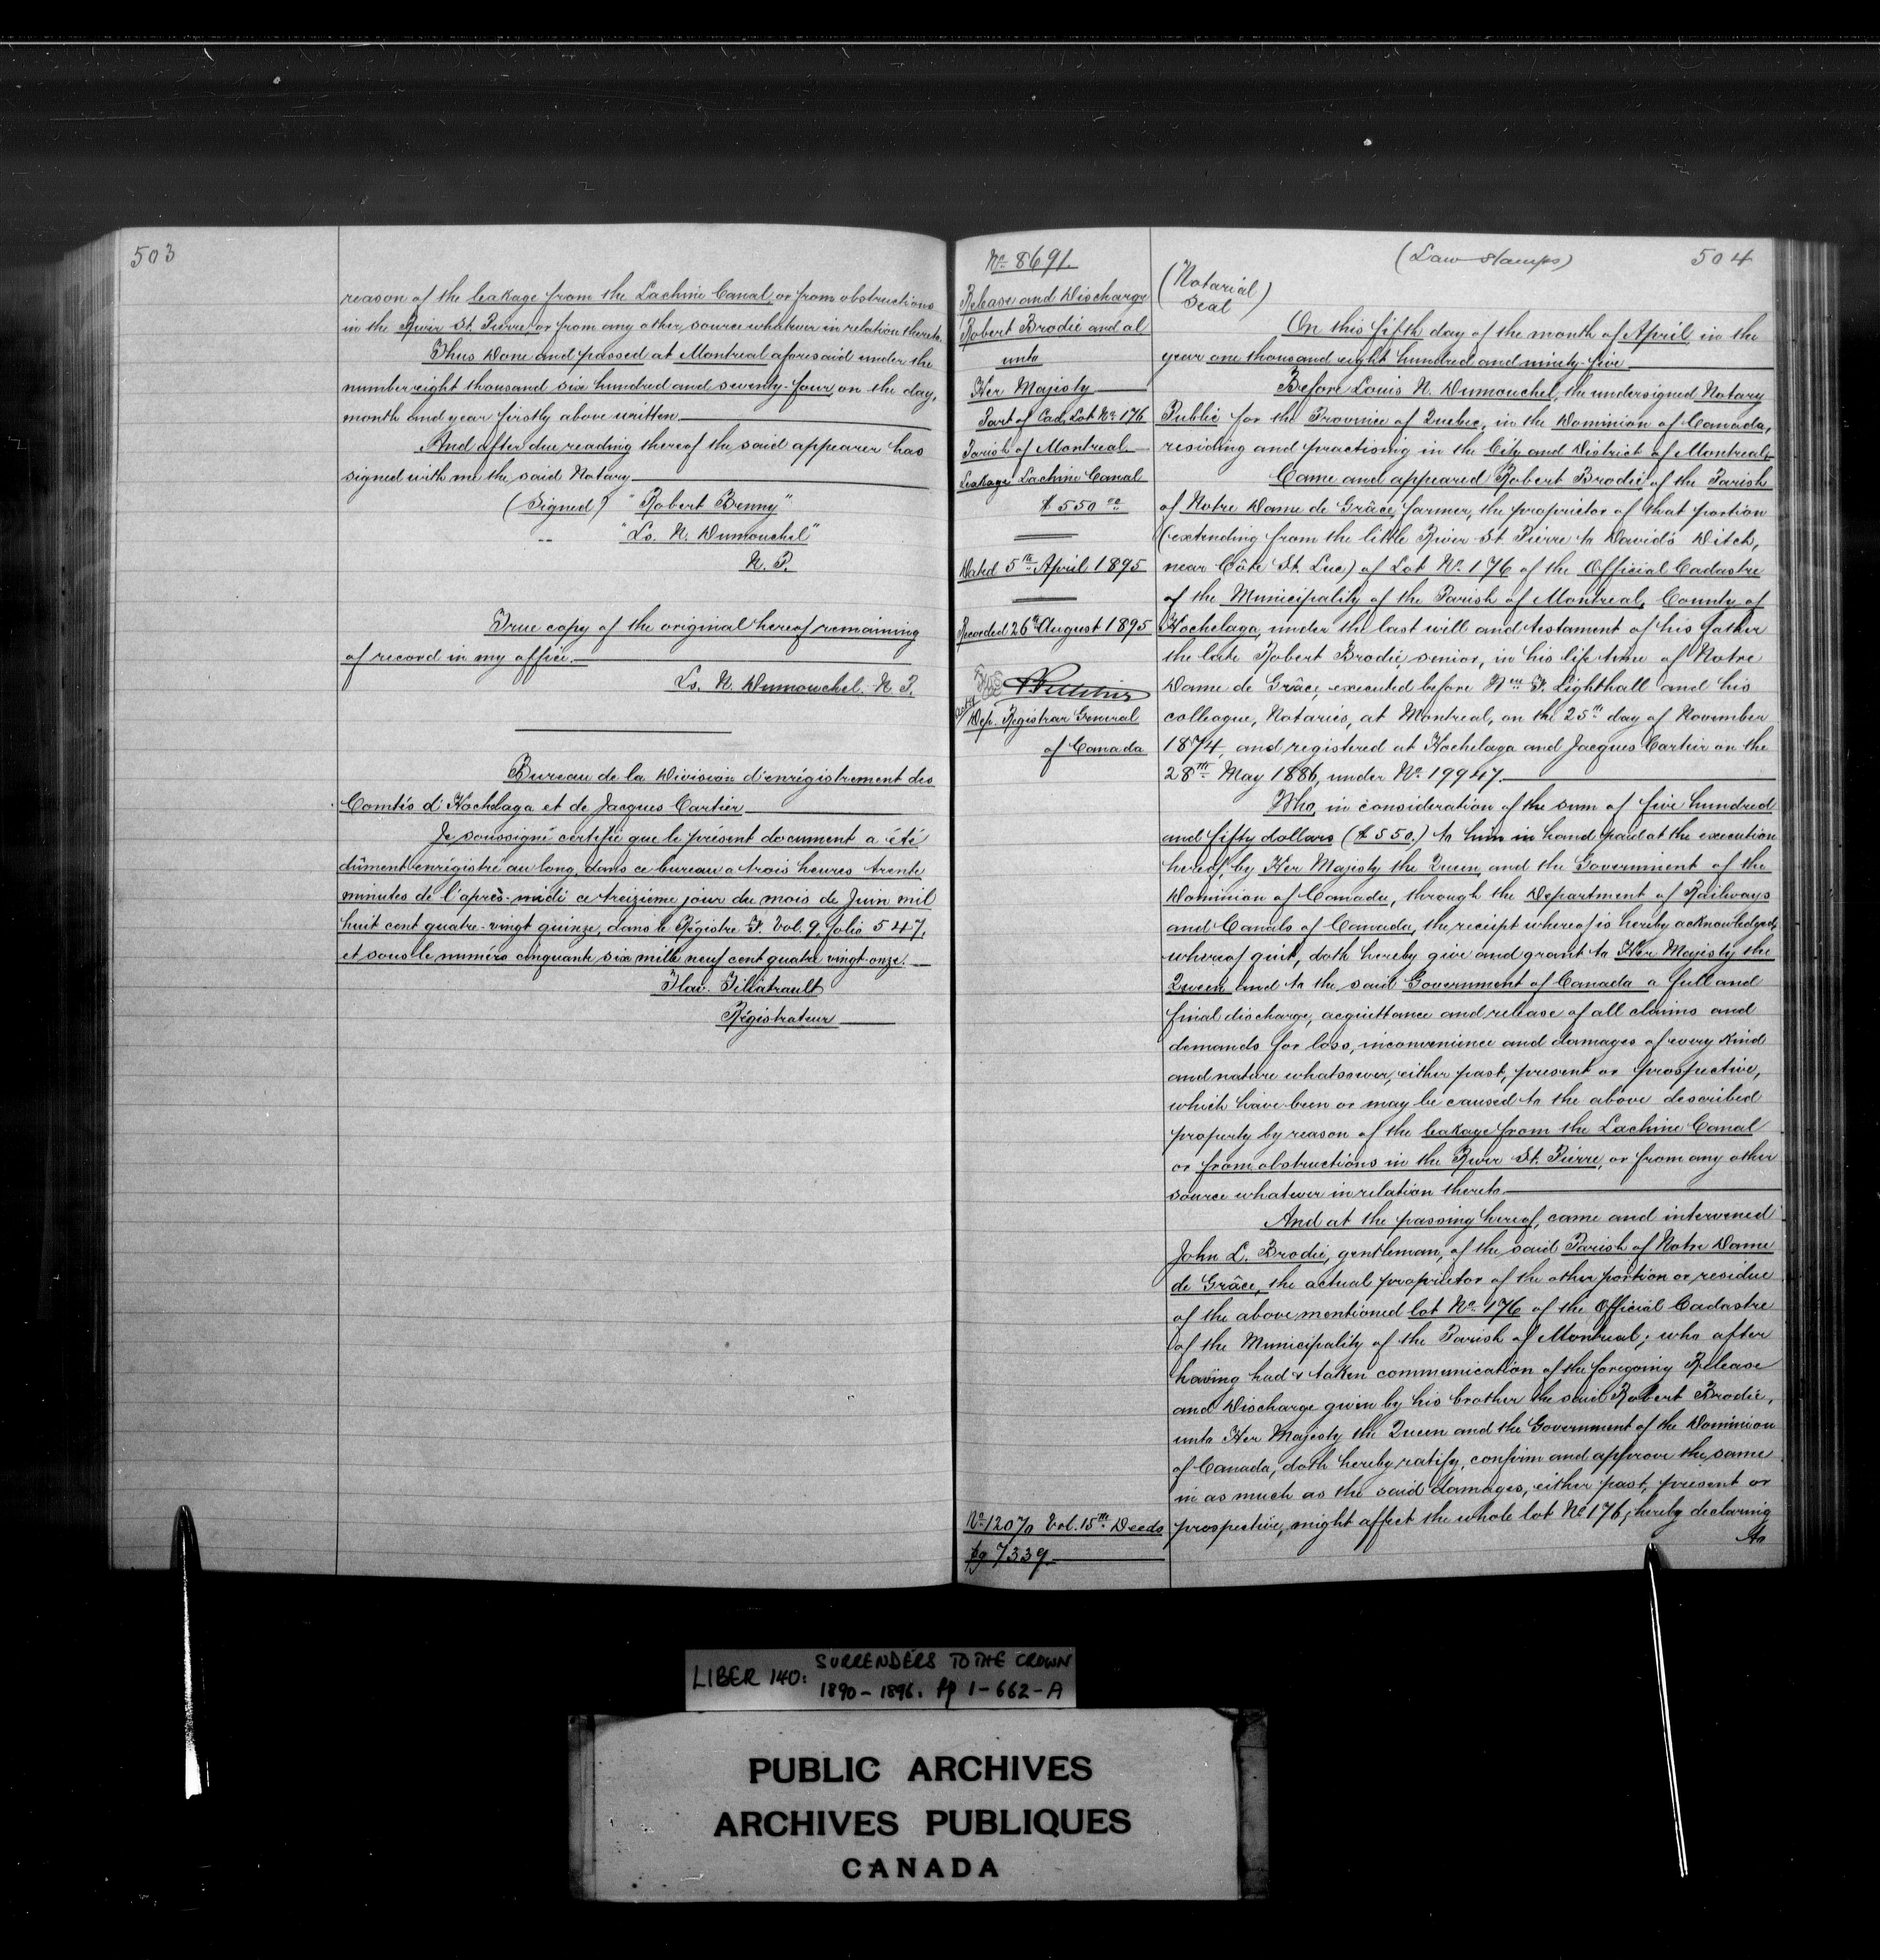 503
reason of the leakage from the Lachine Canal, or from obstructions
in the River St. Pierre, or from any other source whatever in relation thereto.
Thus done and passed at Montreal aforesaid under the
number eight thousand six hundred and seventy-four, on the day,
month and year firstly above written.
And after due reading thereof the said appearer has
signed with me the said Notary
(Signed) "Robert Benny"
" "Ls. N. Dumouchel"
N. P.
True copy of the original hereof remaining
of record in my office.
Ls. N. Dumouchel. N. P.
Bureau de la Division d'enrégistrement des
Comtés d'Hochelaga et de Jacques Cartier
Je soussigné certifie que le présent document a été
dûment enrégistré au long, dans ce bureau a trois heures trente
minutes de l'après-midi ce treizième jour du mois de Juin mil
huit cent quatre-vingt quinze, dans le Régistre F. Vol. 9, folio 547,
et sous le numéro cinquante six mille neuf cent quatre vingt-onze.
Flav. Filiatrault
Régistrateur
No. 8691.
Release and Discharge
Robert Brodie and al
unto
Her Majesty
Part of Cad. Lot No. 176
Parish of Montreal
Leakage Lachine Canal
$550.00
Dated 5th April 1895
Recorded 26th August 1895
Dep. Registrar General
of Canada
No. 12070 Vol. 15th Deeds
pg 7339.
(Law-stamps)
504
(Notarial
Seal)
On this fifth day of the month of April in the
year one thousand eight hundred and ninety-five
Before Louis N. Dumouchel, the undersigned Notary
Public for the Province of Quebec, in the Dominion of Canada,
residing and practising in the City and District of Montreal,
Came and appeared Robert Brodie of the Parish
of Notre Dame de Grâce, farmer, the proprietor of that portion
(extending from the little River St Pierre to David's Ditch,
near Côte St. Luc) of Lot No. 176 of the Official Cadastre
of the Municipality of the Parish of Montreal, County of
Hochelaga, under the last will and testament of his father
the late Robert Brodie, senior, in his life time of Notre
Dame de Grâce, executed before Wm F. Lighthall and his
colleague, Notaries, at Montreal, on the 25th day of November
1874, and registered at Hochelaga and Jacques Cartier on the
28th May 1886, under No. 19947.
Who, in consideration of the sum of five hundred
and fifty dollars ($550.) to him in hand paid at the execution
hereof, by Her Majesty the Queen and the Government of the
Dominion of Canada, through the Department of Railways
and Canals of Canada, the receipt whereof is hereby acknowledged,
whereof quit, doth hereby give and grant to Her Majesty the
Queen and to the said Government of Canada a full and
final discharge, acquittance and release of all claims and
demands for loss, inconvenience and damages of every kind
and nature whatsoever, either past, present or prospective,
which have been or may be caused to the above described
property by reason of the leakage from the Lachine Canal
or from obstructions in the River St. Pierre, or from any other
source whatever in relation thereto.
And at the passing hereof, came and intervened
John L. Brodie, gentleman, of the said Parish of Notre Dame
de Grâce, the actual proprietor of the other portion or residue
of the above mentioned lot No. 176 of the Official Cadastre
of the Municipality of the Parish of Montreal; who after
having had & taken communication of the foregoing Release
and Discharge given by his brother the said Robert Brodie,
unto Her Majesty the Queen and the Government of the Dominion
of Canada, doth hereby ratify, confirm and approve the same
in as much as the said damages, either past, present or
prospective, might affect the whole lot No 176; hereby declaring
to
LIBER 140: SURRENDERS TO THE CROWN
1890-1896. pp 1-662-A
PUBLIC ARCHIVES
ARCHIVES PUBLIQUES
CANADA